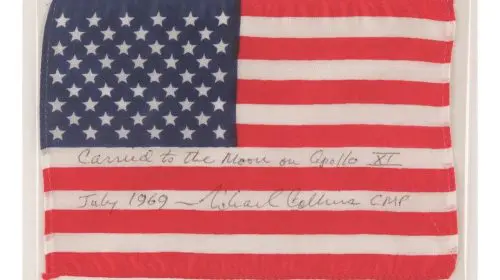 Carried to the Moon on Apollo XI
July 1969 — Michael Collins CMP